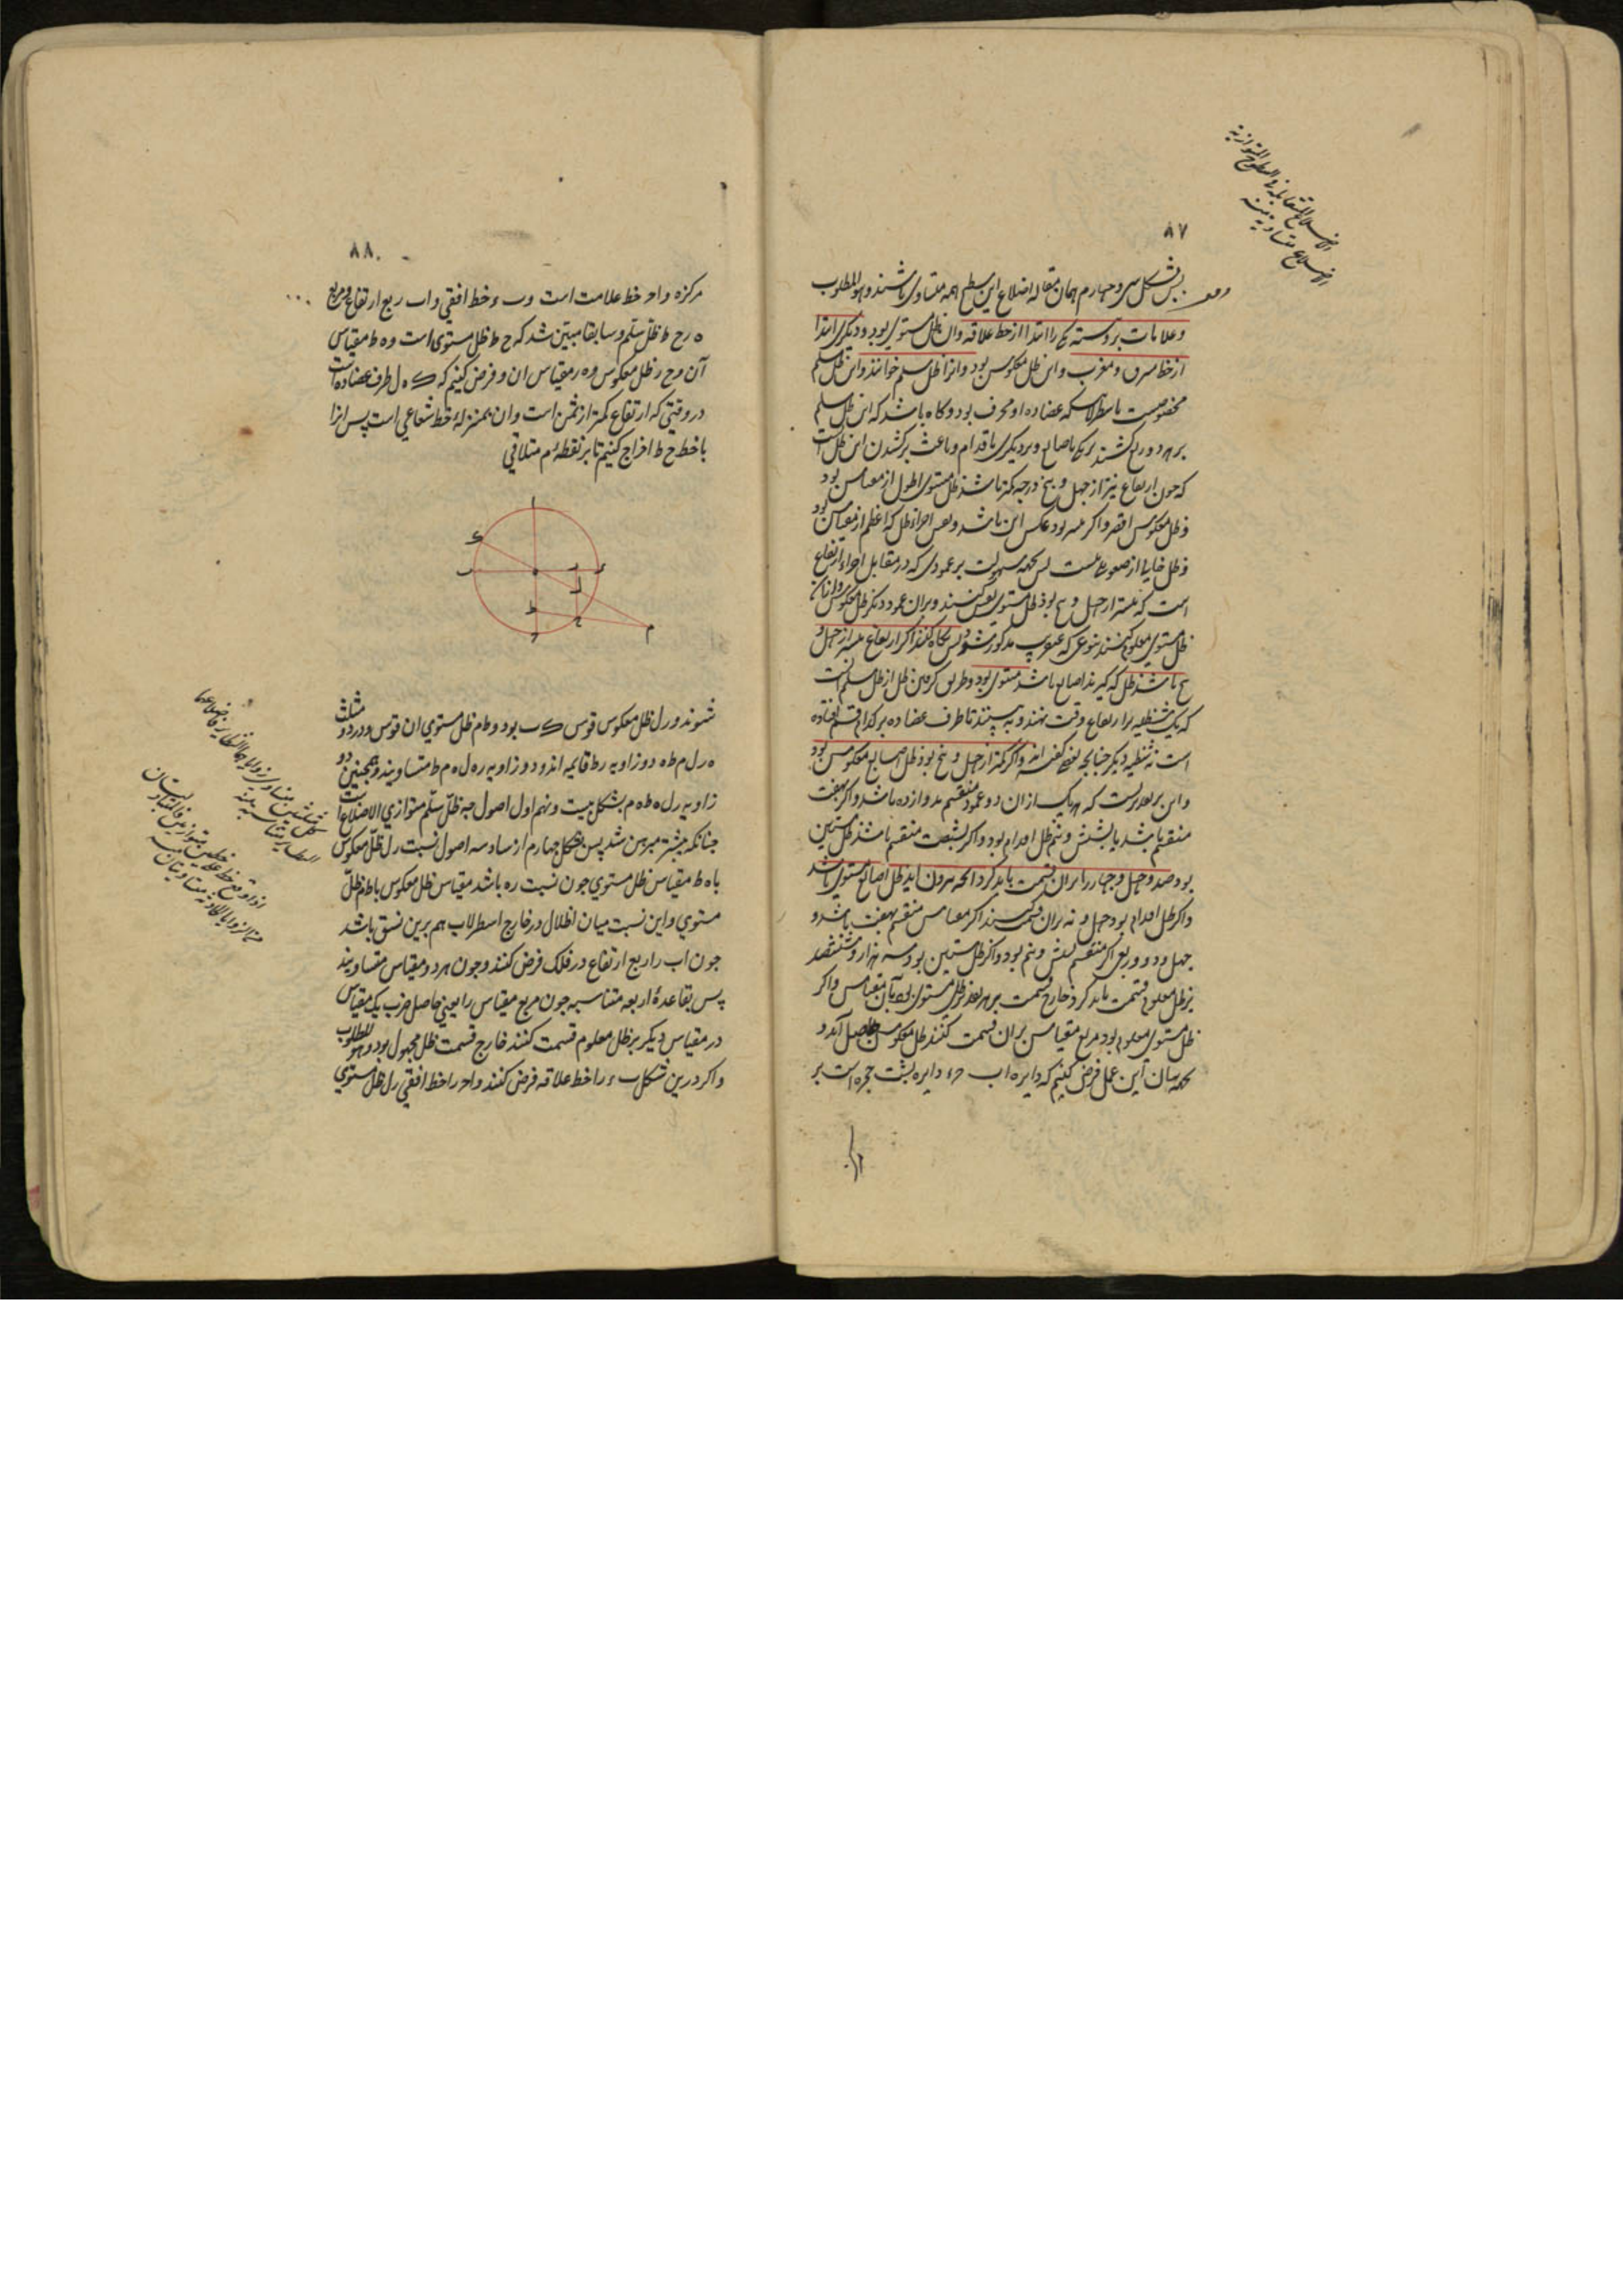 ۸۷
بشکل سی و چهارم همان مقاله اضلاع این سطح همه متساوی باشند وهو المطلوب
و علامات بر دو سته یکی را ابتدا از خط علاقه و آن ظل مستوی بود و دیگری ابتدا
از خط مشرق و مغرب و این ظل معکوس بود و انرا ظل سلم خوانند و این ظل سلم
مخصوصست باسطرلابی که عضاده او محرف بود و کاه باشد که این ظل سلم
بر هر دو ربع کشند یکی باصابع و بر دیگری باقدام و باعث بر کشیدن این ظل انست
که چون ارتفاع نیز از چهل و پنج درجه کمتر باشد ظل مستوی اطول از مقیاس بود
و ظل معکوس اقصر و اکر بیشتر بود عکس این باشد و تعیین اجزاء ظل که اعظم از مقیاس بود
و ظل خالی از صعوبتی نیست پس بجهه سهولت بر عمودی که در مقابل اجزاء ارتفاع
است که بیشتر از چهل و پنج بود ظل مستوی نقش کنند و بران عمود دیکر ظل معکوس و از ان
ظل مستوی معلوم کنند بنوعی که عنقریب مذکور شود پس نکاه کنند اکر ارتفاع بیشتر از چهل و
پنج باشد ظل که کیرند اصابع باشد مستوی بود و طریق کرفتن ظل از ظل سلم انست
که یک شظیه بر ارتفاع وقت نهند و به بینند تا طرف عضاده بر کدام قسم افتاده
است نه شظیه دیکر چنانچه بعضی کفته اند و اکر کمتر از چهل و پنج بود ظل اصابع معکوس بود
و این بر تقدیریست که هر یک از ان دو عمود منقسم بدوازده باشد و اکر بهفت
منقسم باشد یا بشش و نیم ظل اقدام بود و اکر بشصت منقسم باشد ظل ستین
بود و صد و چهل و چهار را بران قسمت باید کرد انچه بیرون آید ظل اصابع مستوی باشد
و اکر ظل اقدام بود چهل و نه بران قسمت کنند اکر مقیاس منقسم بهفت باشد و
چهل و دو و ربعی اکر منقسم بشش و نیم بود و اکر ظل ستین بود سه هزار و ششصد
بر ظل معلوم قسمت باید کرد خارج قسمت بر هر تقدیر ظل مستوی بود بآن مقیاس و اکر
ظل مستوی معلوم بود مربع مقیاس بران قسمت کنند ظل معکوس حاصل آید و
بجهه بیان این عمل فرض کنیم که دایره اب ح ء دایره پشت حجره است بر
۸۸
مرکز ه و اح خط علامت است و ب ء خط افقی و اب ربع ارتفاع و مربع
ه ر ح ط ظل سلم و سابقا مبیّن شد که ح ط ظل مستوی است و ه ط مقیاس
آن و ح ر ظل معکوس و ه ر مقیاس ان و فرض کنیم که ک ه ل طرف عضاده است
در وقتی که ارتفاع کمتر از ثمن است و ان بمنزلهٔ خط شعاعی است پس انرا
با خط ح ط اخراج کنیم تا بر نقطهٔ م متلاقی
شوند و ر ل ظل معکوس قوس ک ب بود و ط م ظل مستوی ان قوس و در دو مثلث
ه ر ل م ط ه دو زاویه ر ط قایمه اند و دو زاویه ر ه ل ه م ط متساویند و همچنین دو
زاویه ر ل ه ط ه م بشکل بیست و نهم اول اصول چه ظلّ سلّم متوازی الاضلاع است
چنانکه پیشتر مبرهن شد پس بشکل چهارم از سادسه اصول نسبت ر ل ظلّ معکوس
با ه ط مقیاس ظل مستوی چون نسبت ر ه باشد مقیاس ظل معکوس با ط م ظلّ
مستوی و این نسبت میان اظلال در خارج اسطرلاب هم برین نسق باشد
چون اب را ربع ارتفاع در فلک فرض کنند و چون هر دو مقیاس متساویند
پس بقاعدهٔ اربعه متناسبه چون مربع مقیاس را یعنی حاصل ضرب یک مقیاس
در مقیاس دیگر بر ظل معلوم قسمت کنند خارج قسمت ظل مجهول بود وهو المطلوب
و اکر درین شکل ب ء را خط علاقه فرض کنند و اح را خط افقی ر ل ظل مستوی